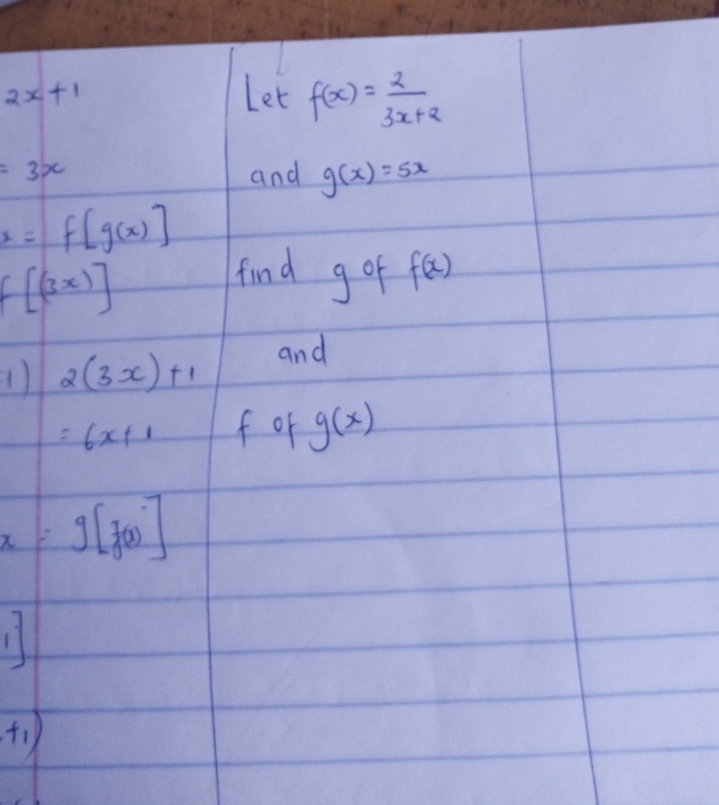 2x+1
= 3x
x = f[g(x)]
f[(3x)]
1) 2(3x)+1
= 6x+1
x = g[f(x)]
1]
+1)
Let f(x) = 2/3x+2
and g(x) = 5x
find g of f(x)
and
f of g(x)